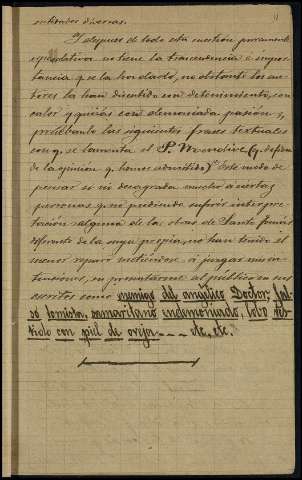 entidades diversas.
Y despues de todo esta cuestion puramente
especulativa no tiene la trascendencia é impor-
tancia q. se la ha dado, no obstante los au-
tores la han discutido con detenimiento, con
calor y quizás con demasiada pasion, y
probando las siguientes frases textuales
con q. se lamenta el P. Mendive (q. defiende
de la opinion q. hemos admitido) "Este modo de
pensar si no desagrada mucho á ciertas
personas q. no pudiendo sufrir interpre-
tación alguna de las obras de Santo Tomás
diferente de la suya propia, no han tenido el
menor reparo metiéndose á juzgar mis in-
tensiones, en presentarme al público en sus
escritos como enemigo del angélico Doctor, fal-
so tomista, samaritano endemoniado, lobo ves-
tido con piel de oveja --- etc, etc."